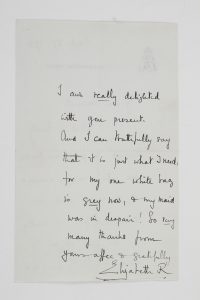 I am really delighted
with your present.
And I can truthfully say
that it is just what I need,
for my one white bag
is grey now, & my maid
was in despair! So very
many thanks from
yours affec & gratefully
Elizabeth R